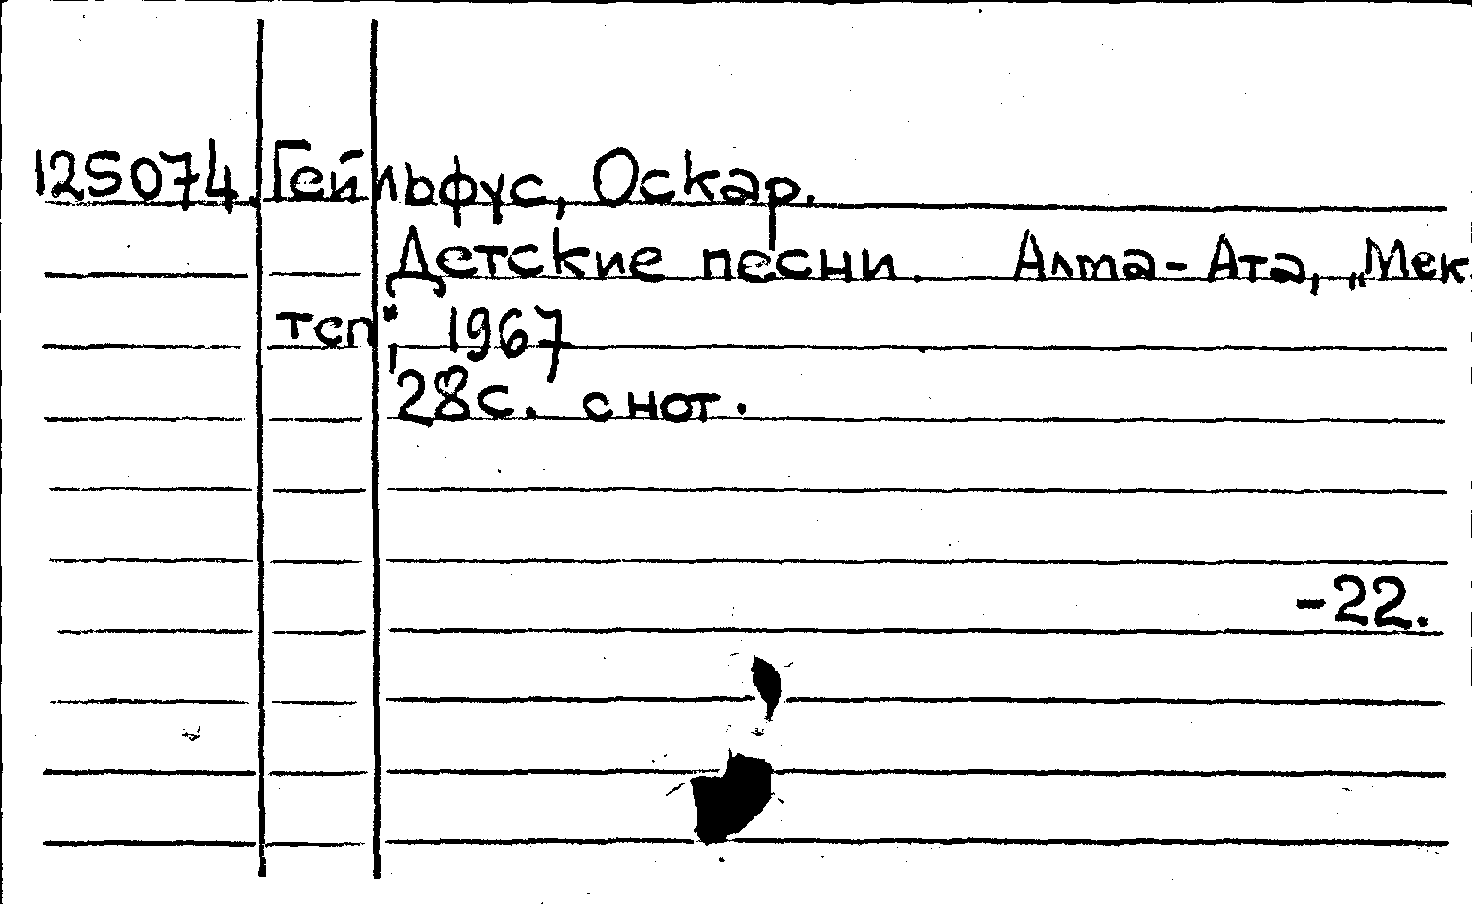 125074. Гейльфус, Оскар.
Детские песни. Алма-Ата, „Мек
теп“, 1967
28с. с нот.
-22.